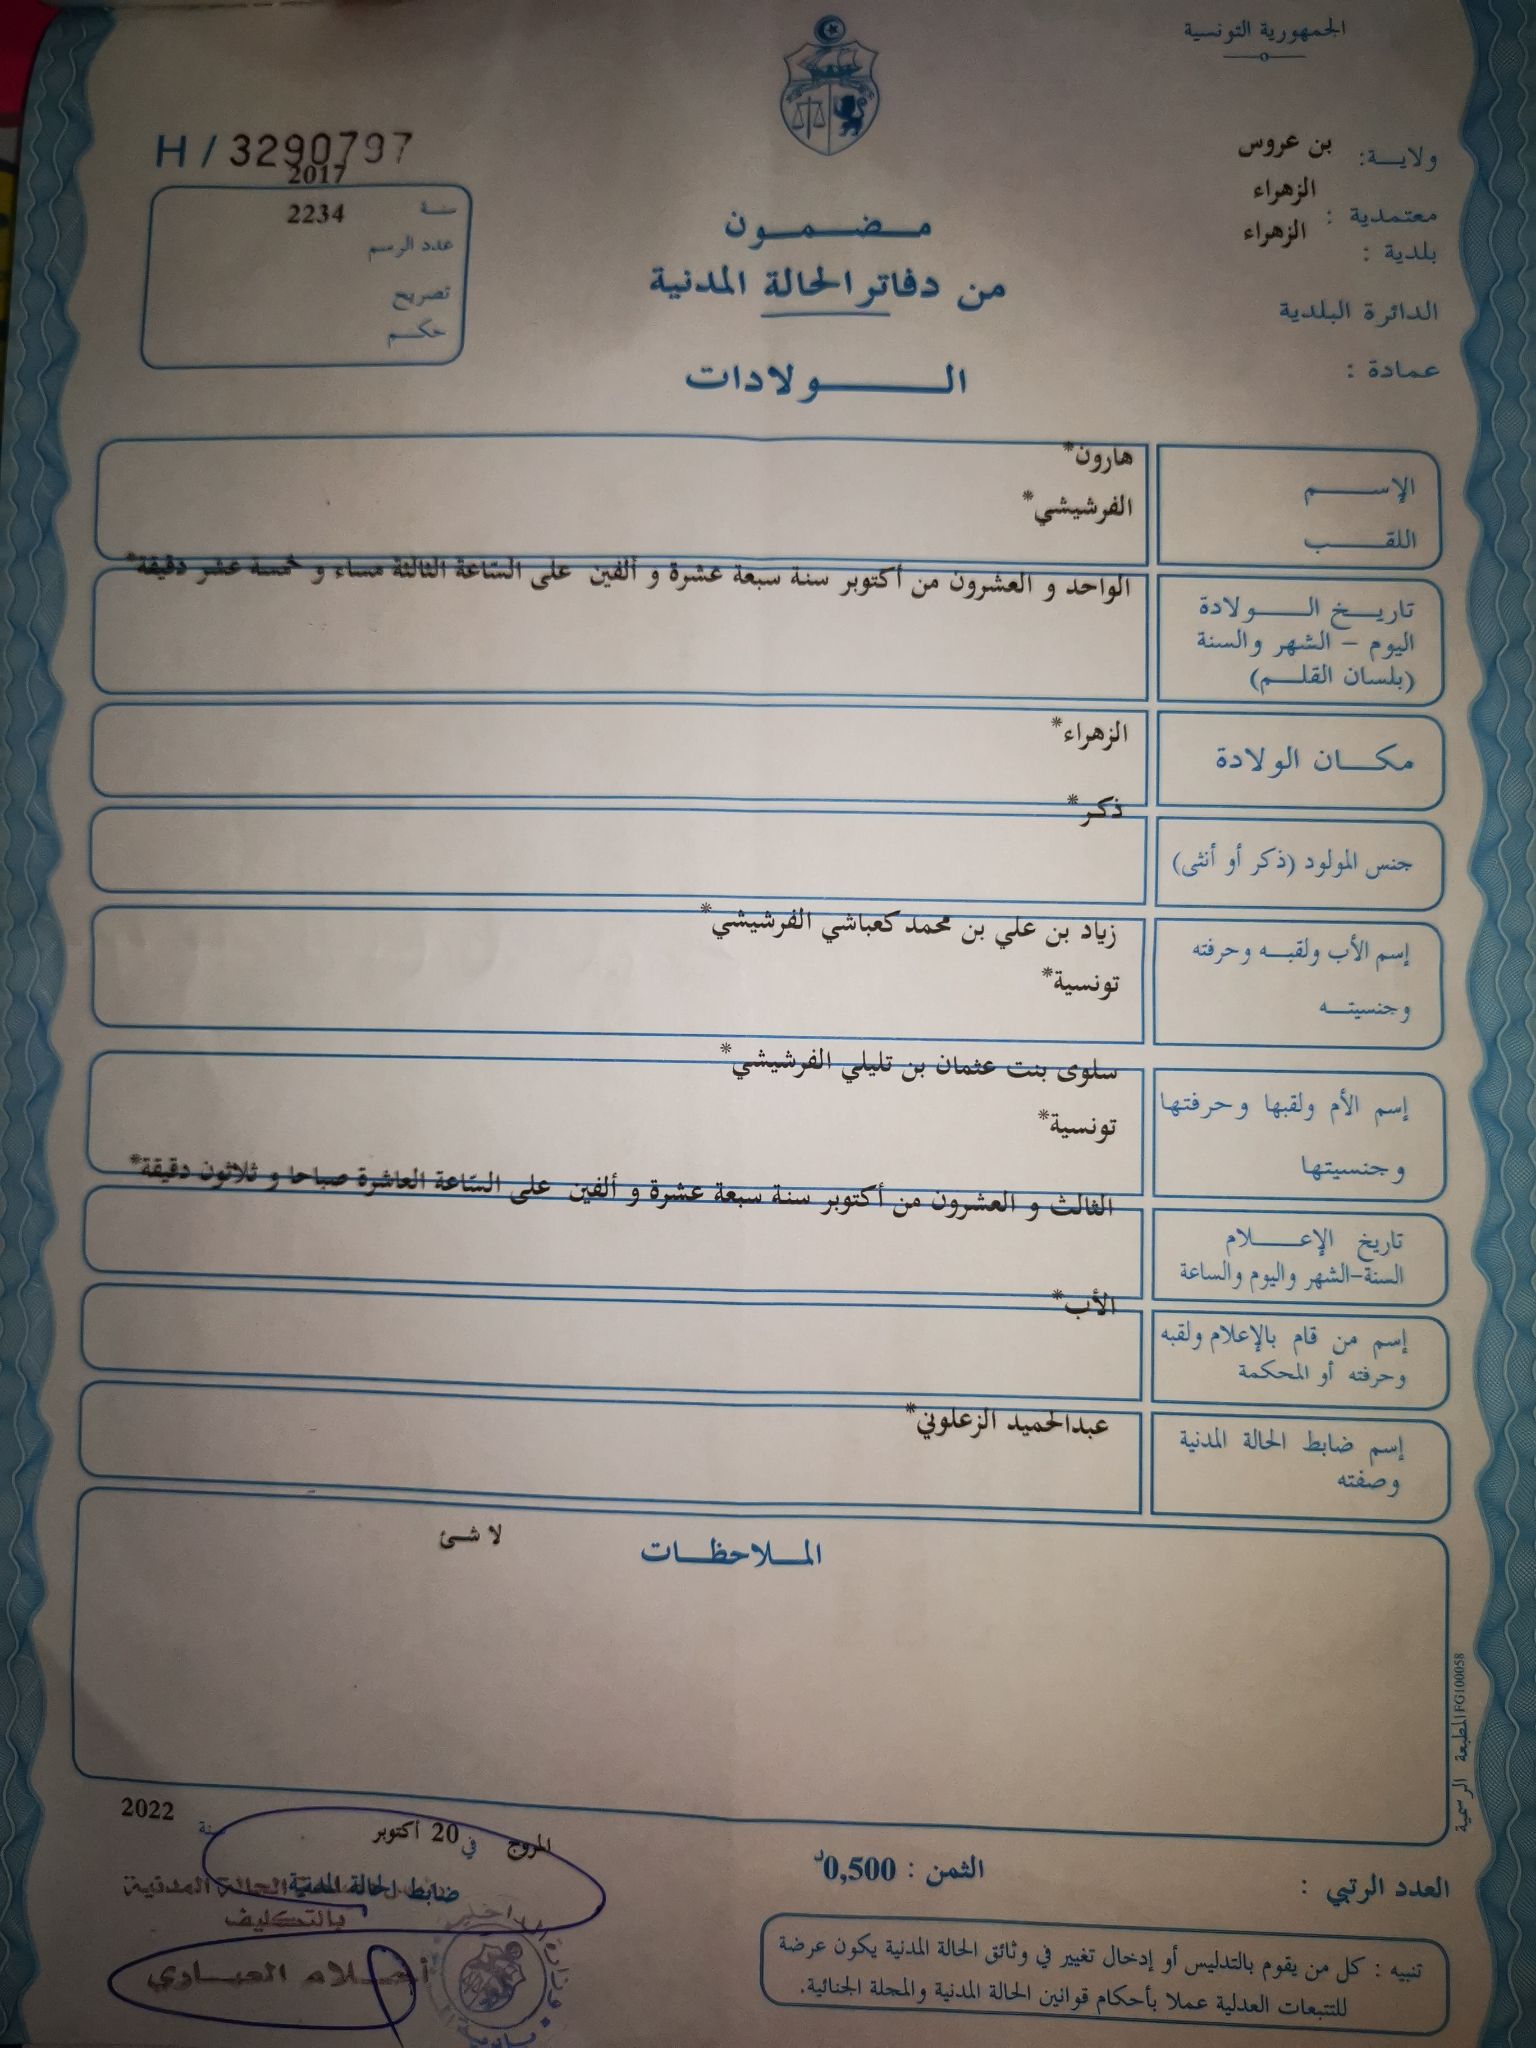 الجمهورية التونسية
ولاية: بن عروس
معتمدية : الزهراء
بلدية : الزهراء
الدائرة البلدية
عمادة :
H / 3290797
سنة 2017
عدد الرسم 2234
تصريح
حكم
مضمون
من دفاتر الحالة المدنية
الولادات
الإسم هارون*
اللقب الفرشيشي*
تاريخ الولادة
اليوم – الشهر والسنة
(بلسان القلم)
الواحد و العشرون من أكتوبر سنة سبعة عشرة و ألفين على السّاعة الثالثة مساء و خمسة عشر دقيقة*
مكان الولادة الزهراء*
جنس المولود (ذكر أو أنثى) ذكر*
إسم الأب ولقبه وحرفته زياد بن علي بن محمد كعباشي الفرشيشي*
وجنسيته تونسية*
إسم الأم ولقبها وحرفتها سلوى بنت عثمان بن تليلي الفرشيشي*
وجنسيتها تونسية*
تاريخ الإعلام
السنة-الشهر واليوم والساعة
الثالث و العشرون من أكتوبر سنة سبعة عشرة و ألفين على السّاعة العاشرة صباحا و ثلاثون دقيقة*
إسم من قام بالإعلام ولقبه
وحرفته أو المحكمة
الأب*
إسم ضابط الحالة المدنية
وصفته
عبدالحميد الزعلوني*
الملاحظات لا شئ
المطبعة الرسمية FG100058
المروج في 20 أكتوبر سنة 2022
ضابط الحالة المدنية
الحالة المدنية
بالتكليف
أحلام العباوي
العدد الرتبي :
الثمن : 0,500د
تنبيه : كل من يقوم بالتدليس أو إدخال تغيير في وثائق الحالة المدنية يكون عرضة
للتتبعات العدلية عملا بأحكام قوانين الحالة المدنية والمجلة الجنائية.